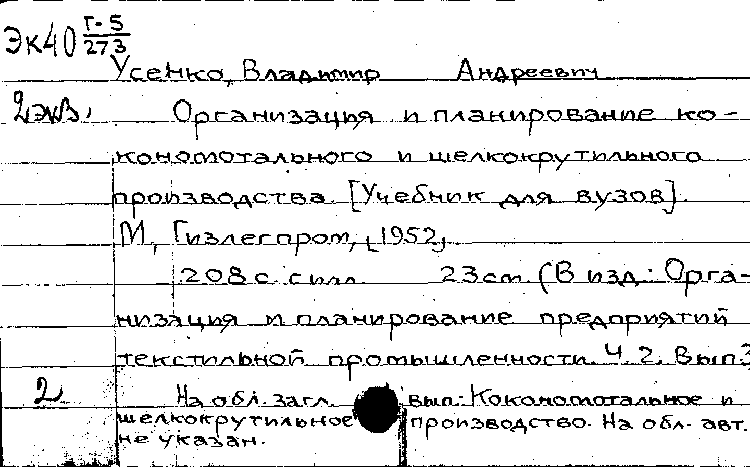 Эк40 Г-5/273
Усенко, Владимир Андреевич
2 экз. Организация и планирование ко-
кономотального и шелкокрутильного
производства. [Учебник для вузов].
М, Гизлегпром, [1952]
208 с. с илл. 23 см. (В изд.: Орга-
низация и планирование предприятий
текстильной промышленности. Ч. 2. Вып. 3
2 На обл. загл. вып.: Кокономотальное и
шелкокрутильное производство. На обл. авт.
не указан.